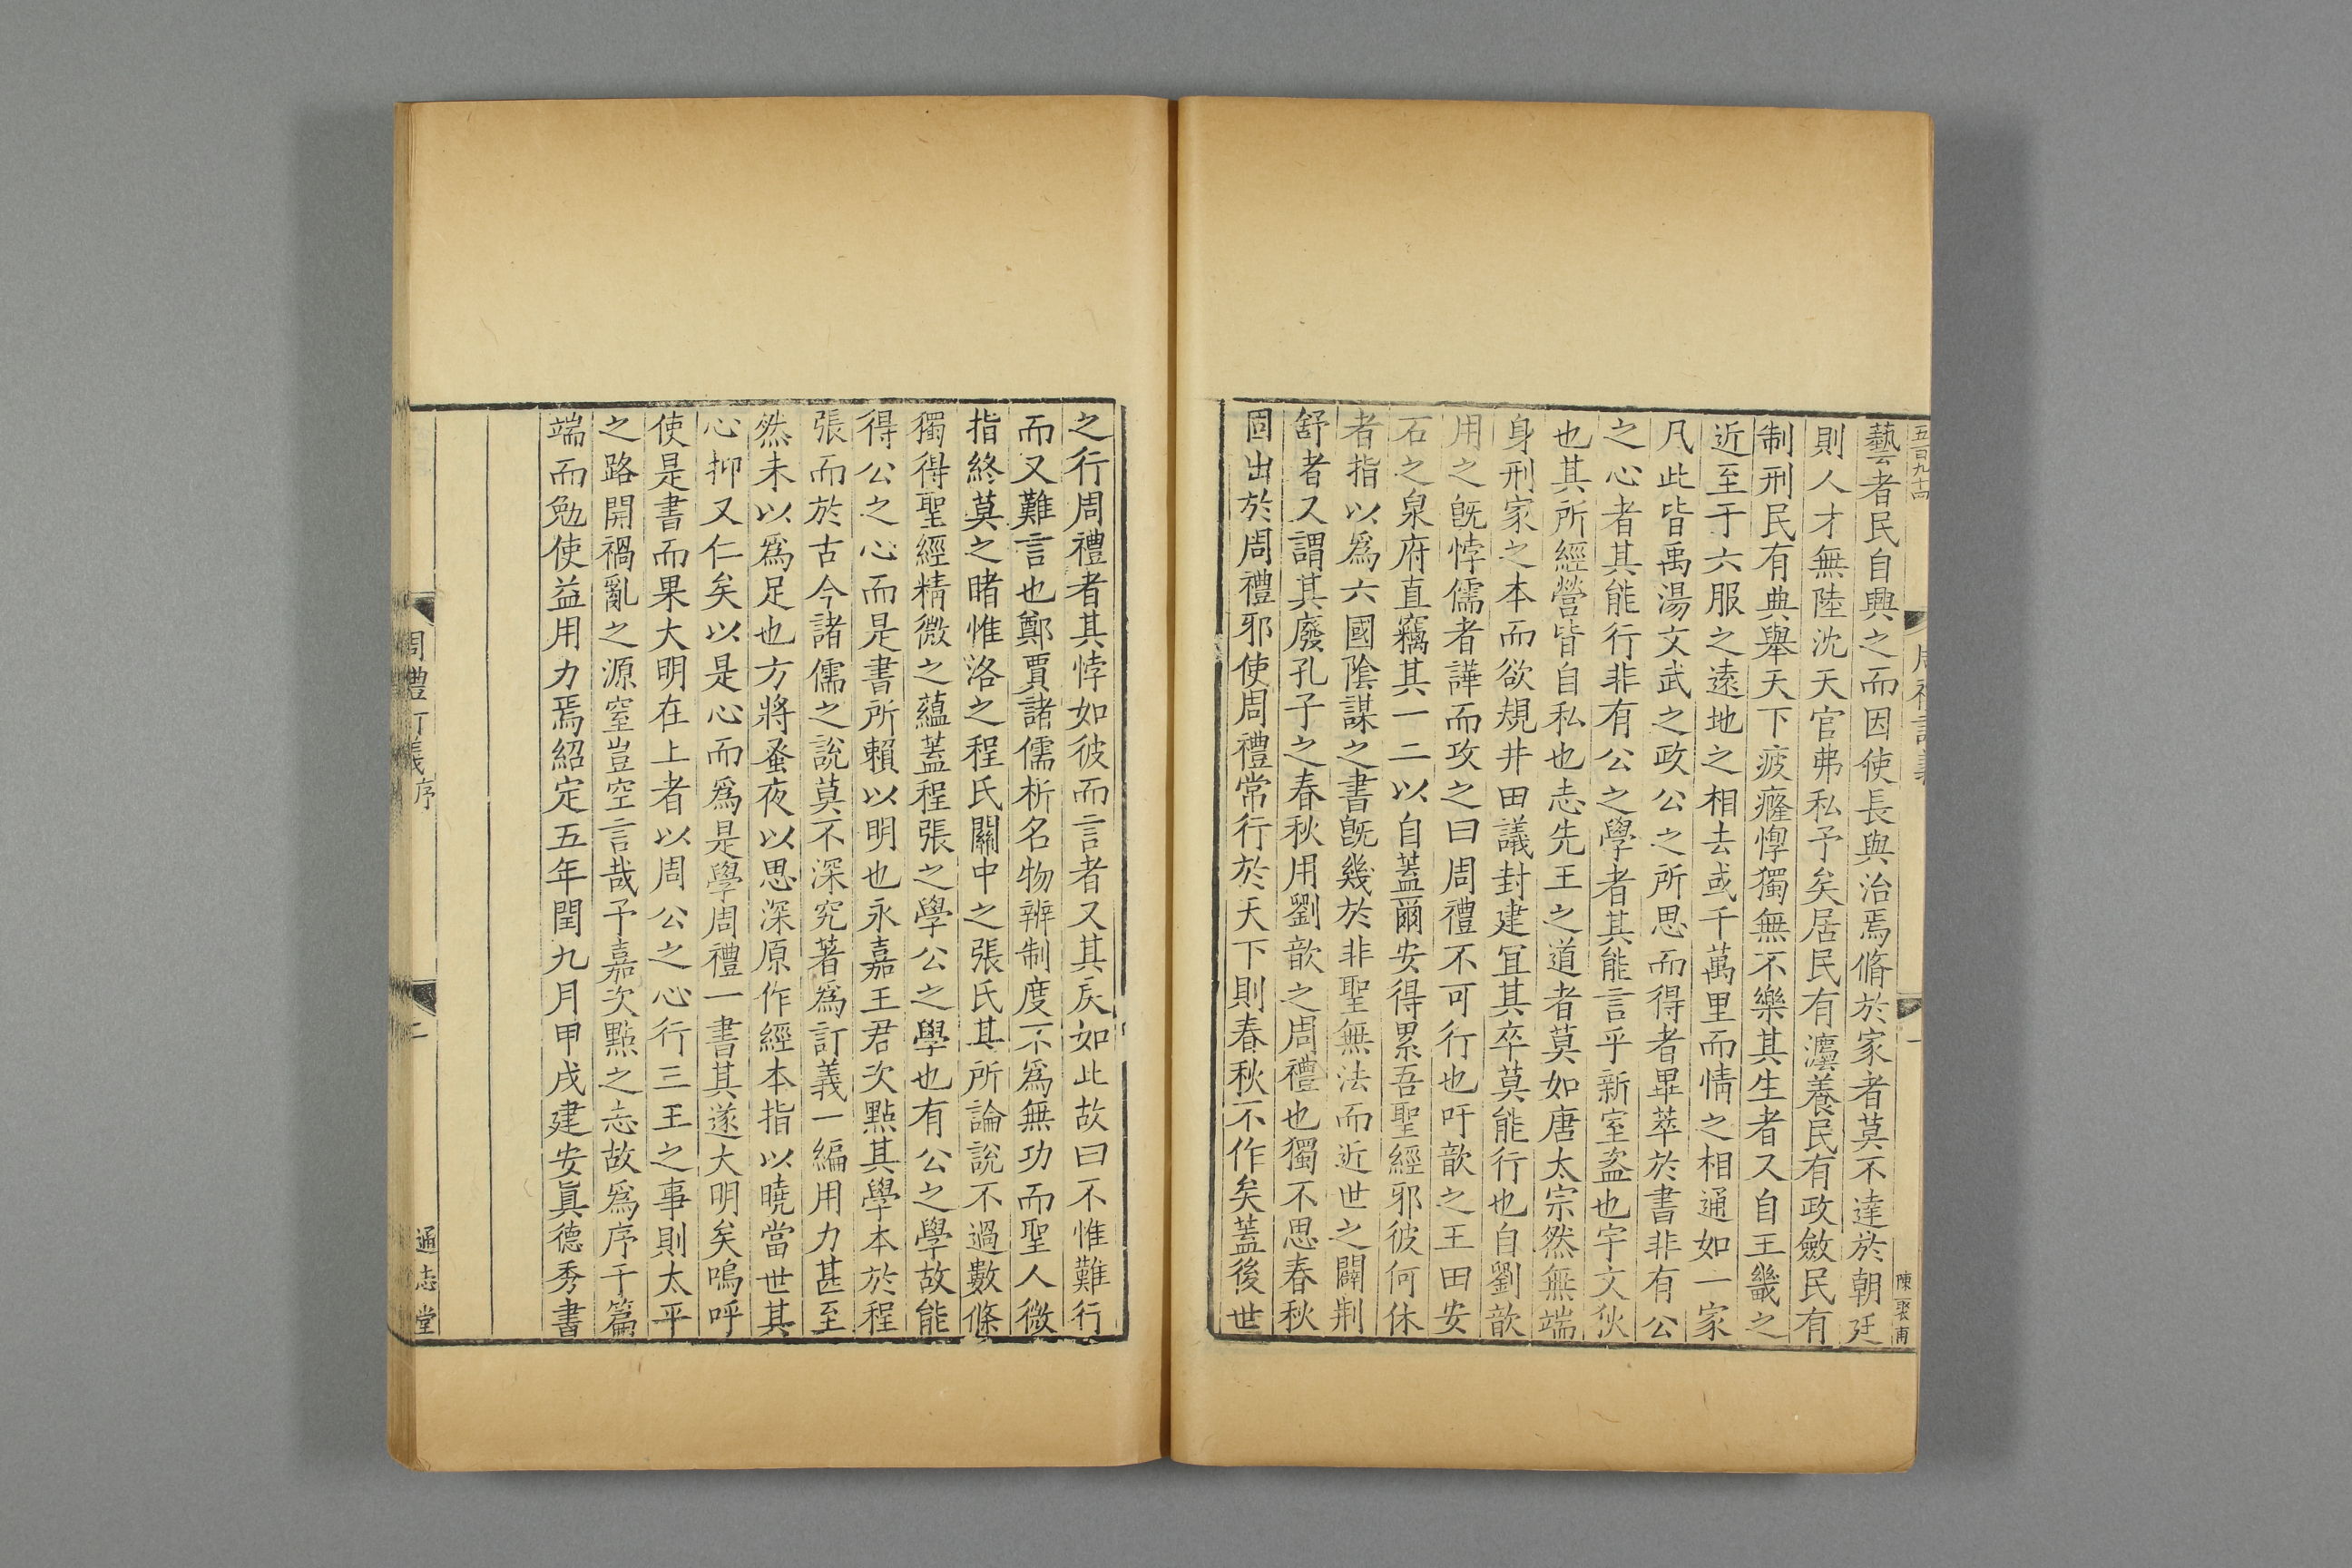 五百九十四
周禮訂義
一
陳聚甫
藝者民自興之而因使長與治焉脩於家者莫不達於朝廷
則人才無陸沈天官弗私予矣居民有灋養民有政斂民有
制刑民有典舉天下疲癃惸獨無不樂其生者又自王畿之
近至于六服之遠地之相去或千萬里而情之相通如一家
凡此皆禹湯文武之政公之所思而得者畢萃於書非有公
之心者其能行非有公之學者其能言乎新室盜也宇文狄
也其所經營皆自私也志先王之道者莫如唐太宗然無端
身刑家之本而欲規井田議封建冝其卒莫能行也自劉歆
用之旣悖儒者譁而攻之曰周禮不可行也吁歆之王田安
石之泉府直竊其一二以自蓋爾安得累吾聖經邪彼何休
者指以爲六國隂謀之書旣幾於非聖無法而近世之闢荆
舒者又謂其廢孔子之春秋用劉歆之周禮也獨不思春秋
固出於周禮邪使周禮常行於天下則春秋不作矣蓋後世
之行周禮者其悖如彼而言者又其戾如此故曰不惟難行
而又難言也鄭賈諸儒析名物辨制度不爲無功而聖人微
指終莫之睹惟洛之程氏關中之張氏其所論說不過數條
獨得聖經精微之蘊蓋程張之學公之學也有公之學故能
得公之心而是書所賴以明也永嘉王君次點其學本於程
張而於古今諸儒之說莫不深究著爲訂義一編用力甚至
然未以爲足也方將蚤夜以思深原作經本指以曉當世其
心抑又仁矣以是心而爲是學周禮一書其遂大明矣嗚呼
使是書而果大明在上者以周公之心行三王之事則太平
之路開禍亂之源窒豈空言哉予嘉次點之志故爲序于篇
端而勉使益用力焉紹定五年閏九月甲戌建安眞德秀書
周禮訂義序
二
通志堂